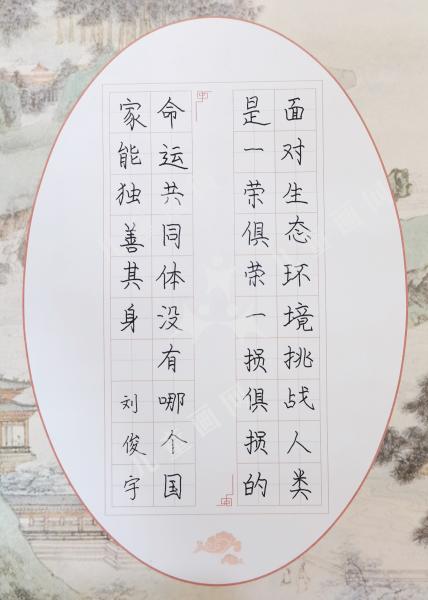 面对生态环境挑战人类
是一荣俱荣一损俱损的
命运共同体没有哪个国
家能独善其身
刘俊宇